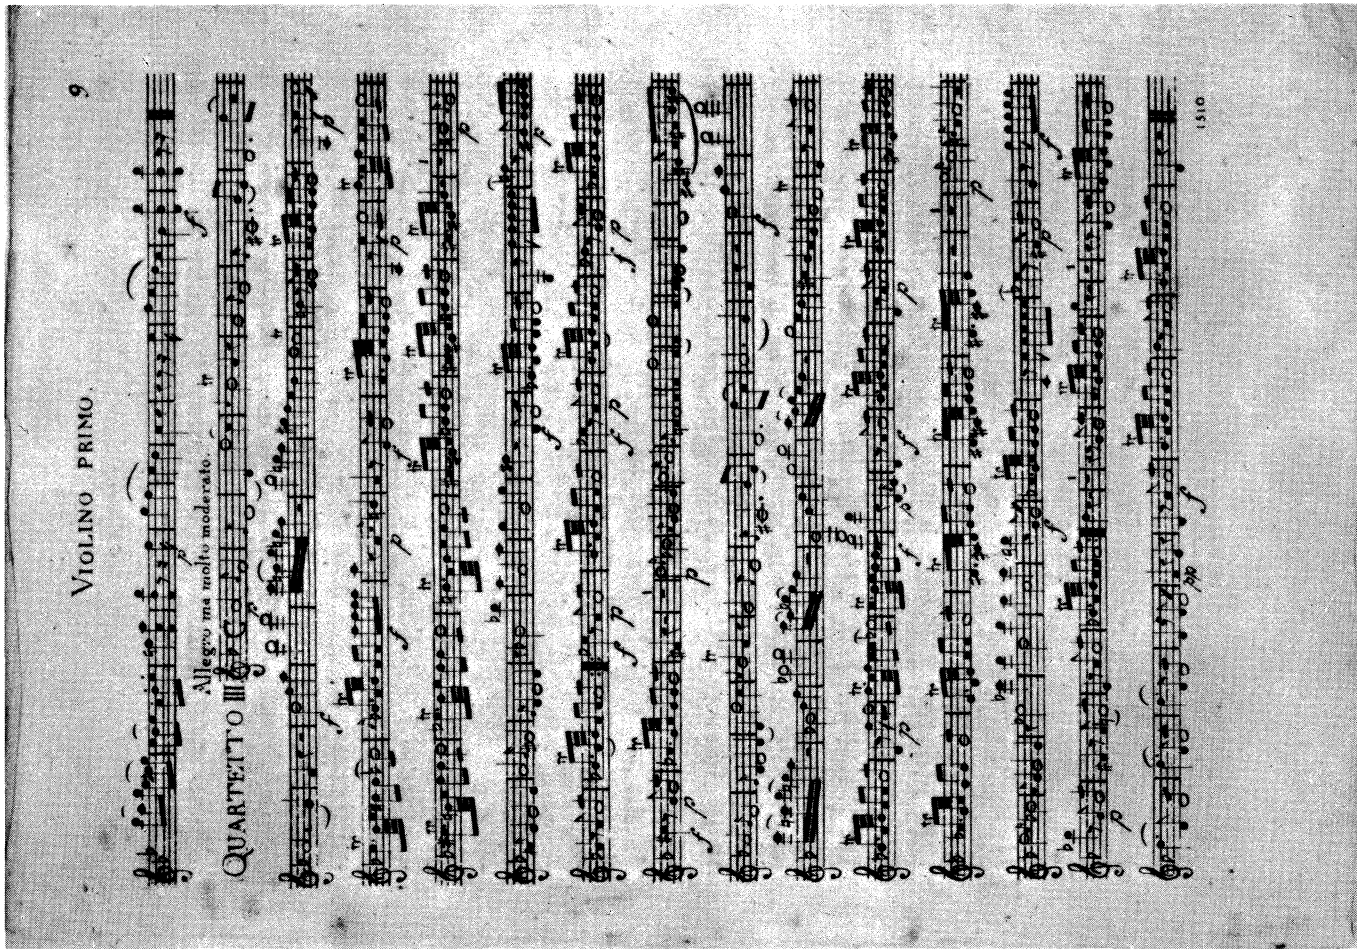 VIOLINO PRIMO.
9
Allegro ma molto moderato.
QUARTETTO III
1510